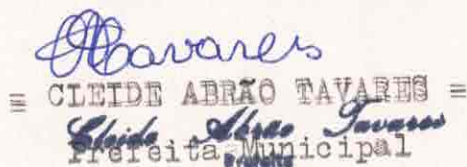 Tavares
≡ CLEIDE ABRÃO TAVARES ≡
Cleide Abrao Tavares
Prefeita Municipal